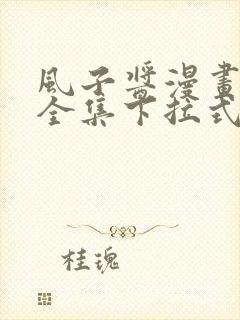 風子醬漫畫
全集下拉式
桂瑰